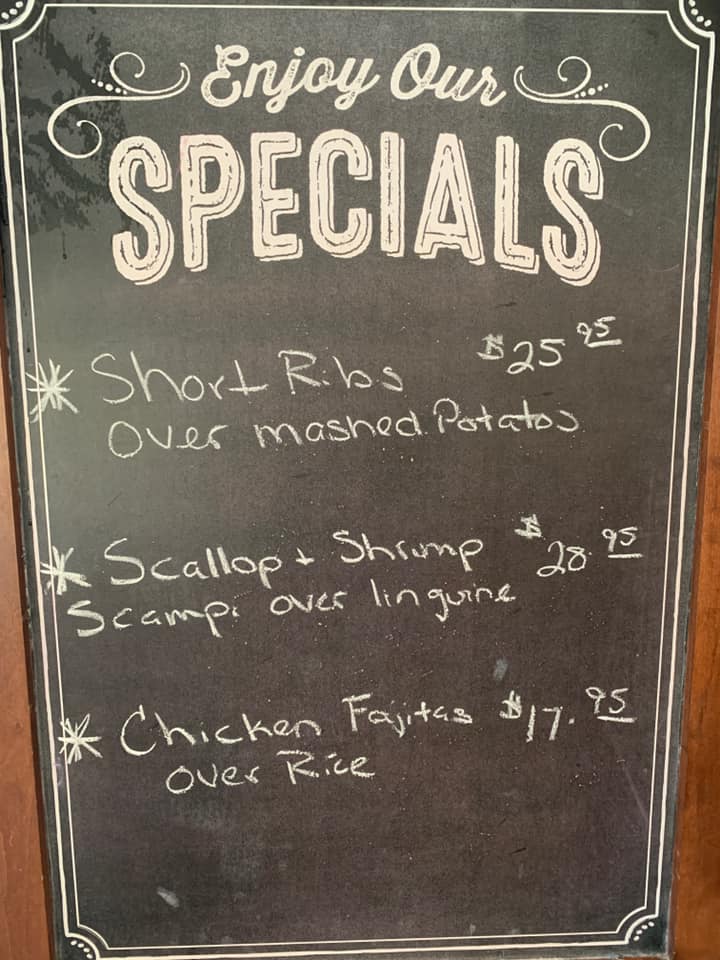 Enjoy Our
SPECIALS
* Short Ribs $25 95
over mashed Potatos
* Scallop + Shrimp $28.95
Scampi over linguine
* Chicken Fajitas $17.95
over Rice